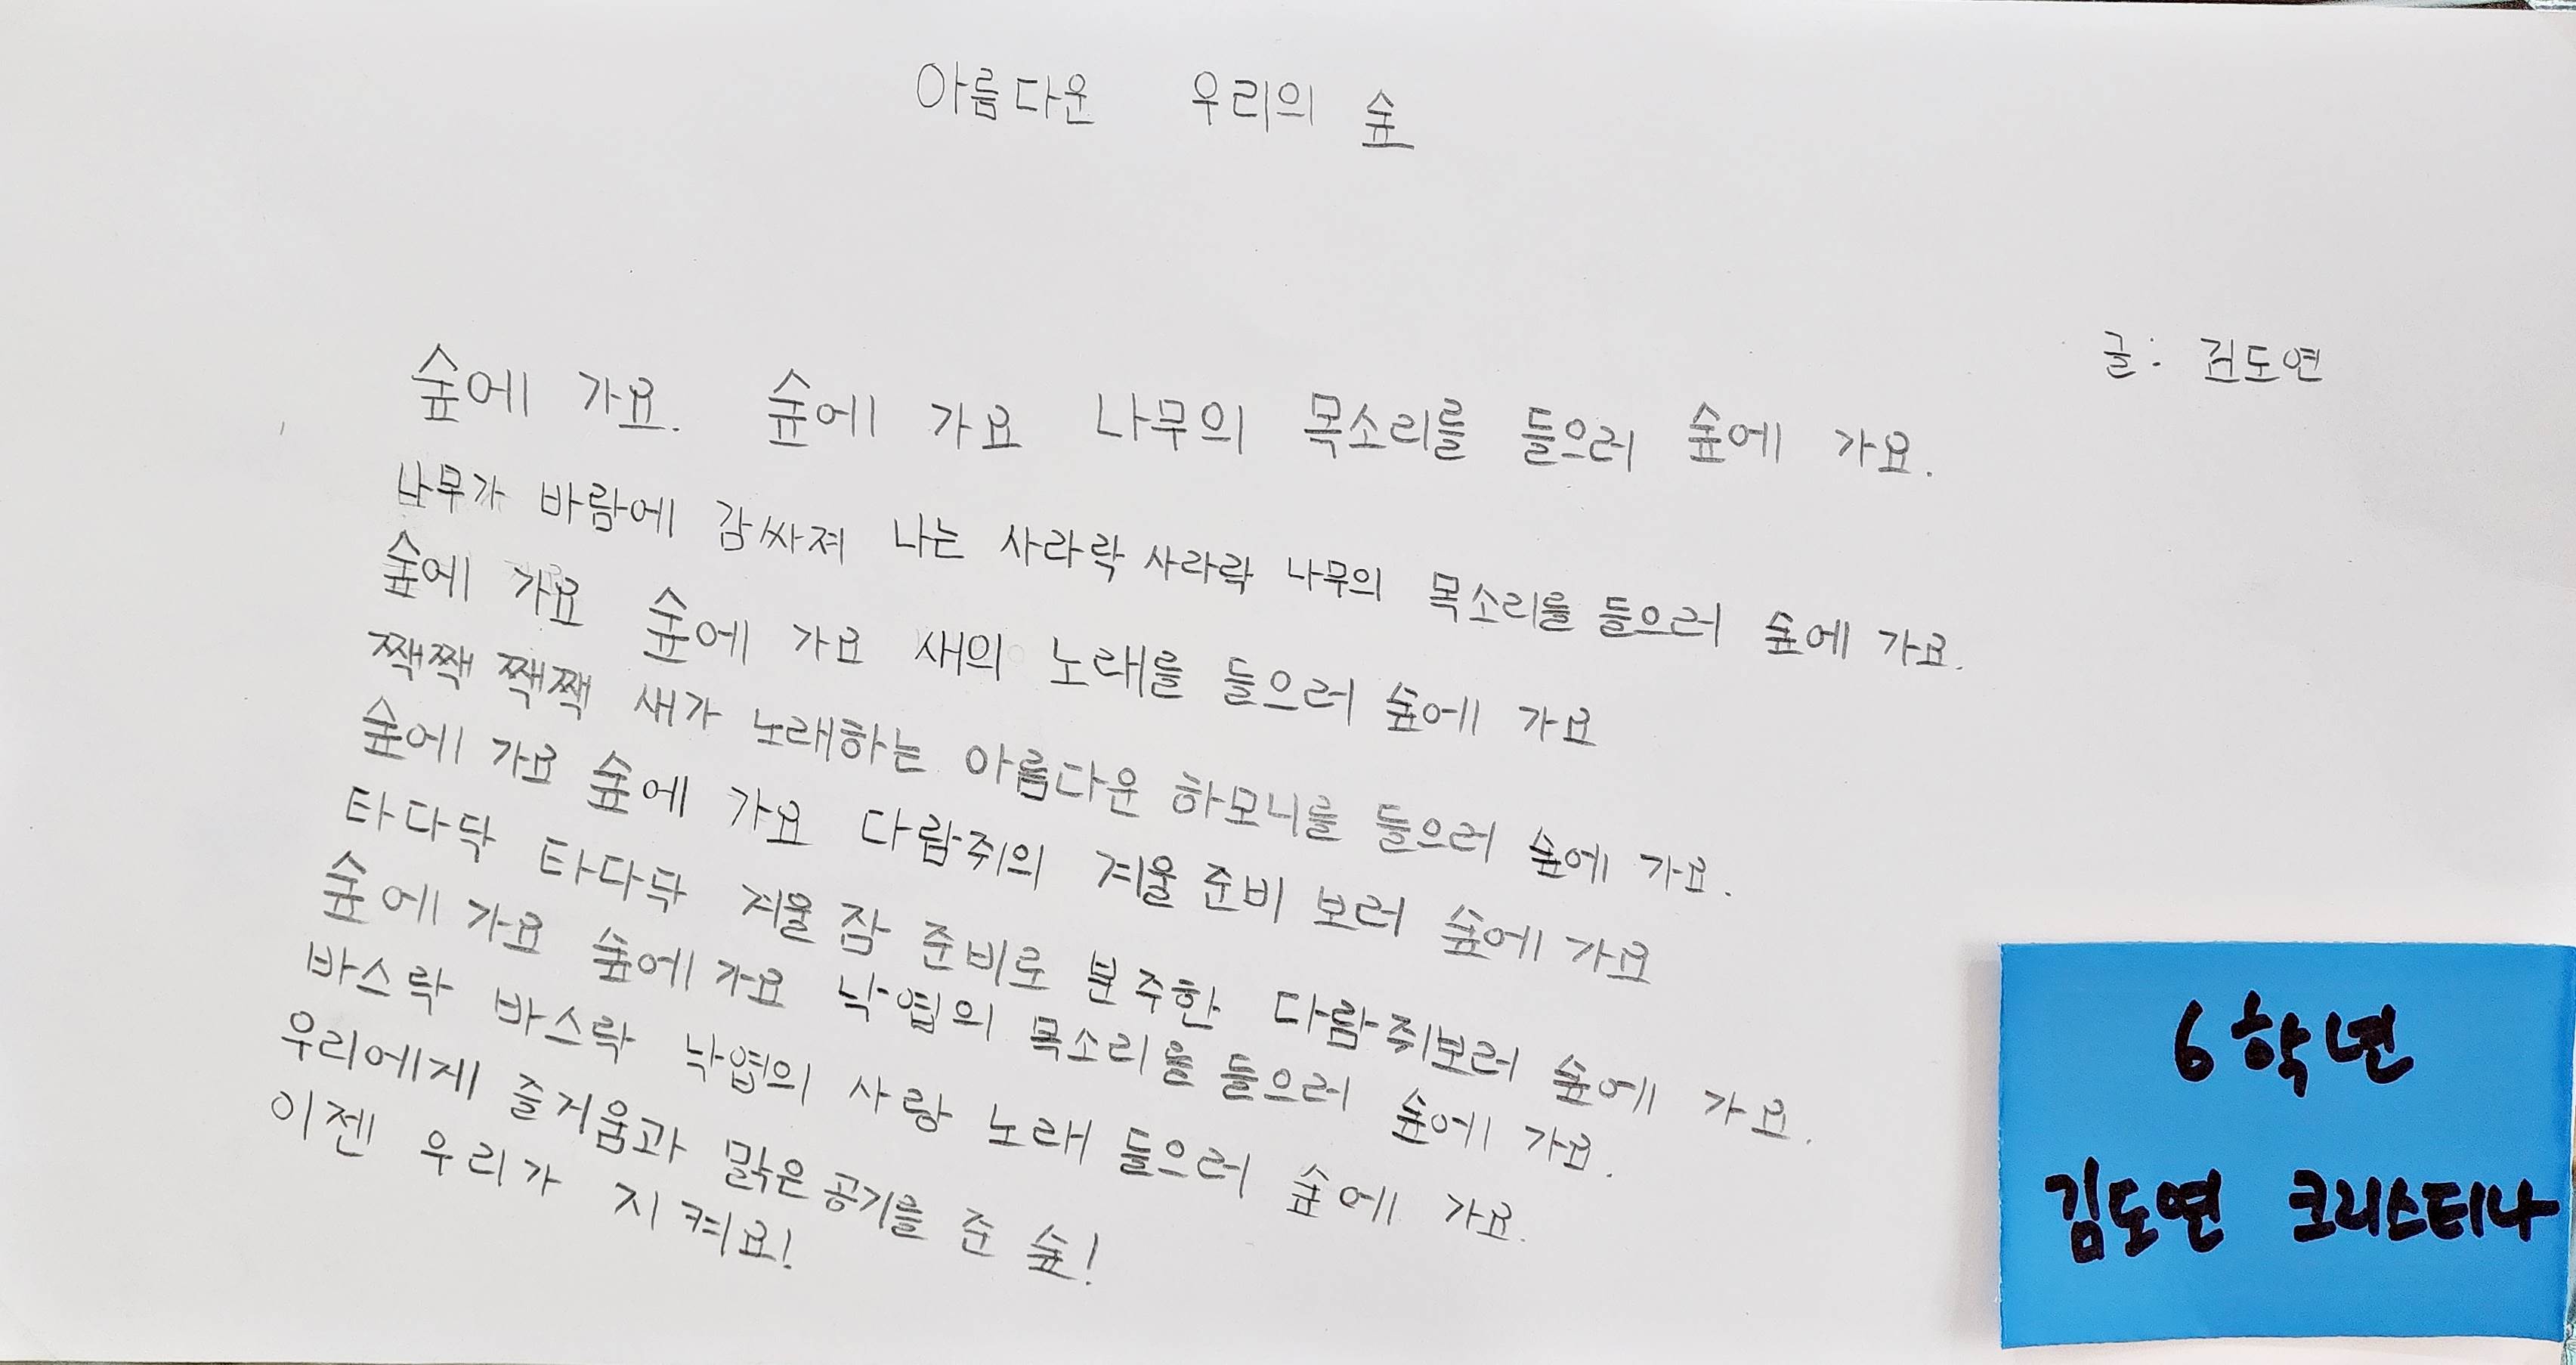 아름다운 우리의 숲
글: 김도연
숲에 가요. 숲에 가요 나무의 목소리를 들으러 숲에 가요.
나무가 바람에 감싸져 나는 사라락 사라락 나무의 목소리를 들으러 숲에 가요.
숲에 가요 숲에 가요 새의 노래를 들으러 숲에 가요
짹짹 짹짹 새가 노래하는 아름다운 하모니를 들으러 숲에 가요.
숲에 가요 숲에 가요 다람쥐의 겨울 준비 보러 숲에 가요
타다닥 타다닥 겨울 잠 준비로 분주한 다람쥐보러 숲에 가요.
숲에 가요 숲에 가요 낙엽의 목소리을 들으러 숲에 가요.
바스락 바스락 낙엽의 사랑 노래 들으러 숲에 가요.
우리에게 즐거움과 맑은 공기를 준 숲!
이젠 우리가 지켜요!
6학년
김도연 크리스티나